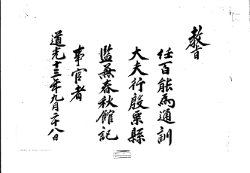 教旨
任百能為通訓
大夫行殷栗縣
監兼春秋館記
事官者
道光十三年九月二十八日